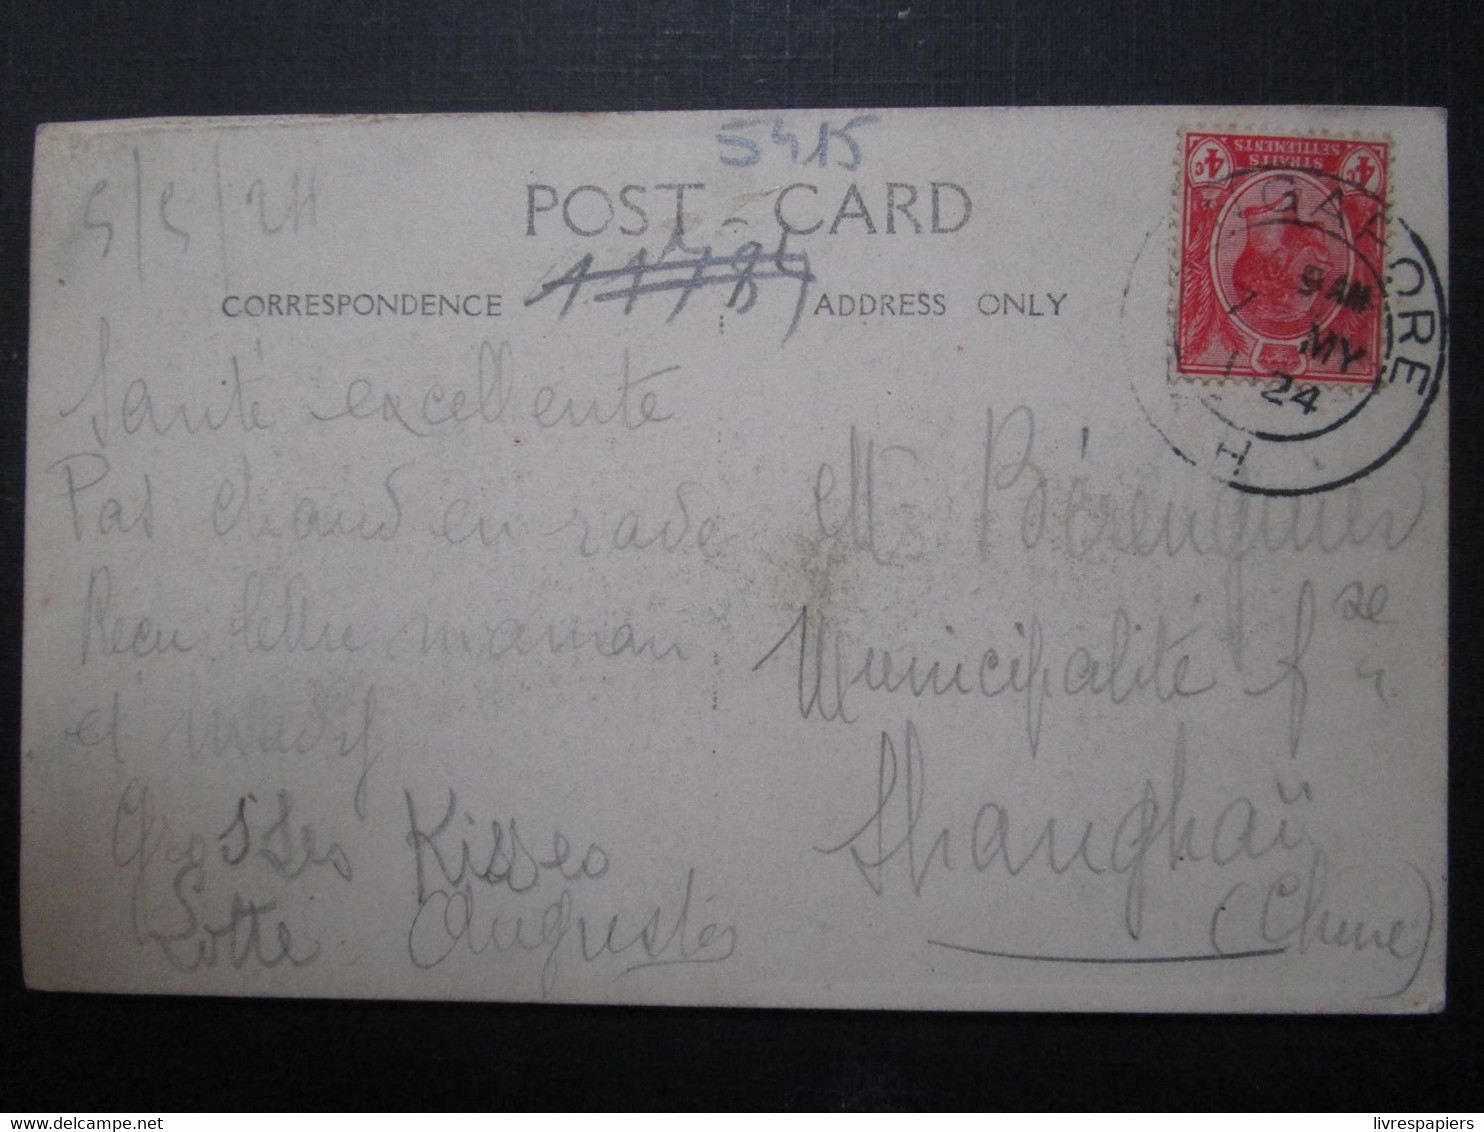 5415
5/5/24
POST CARD
11784
CORRESPONDENCE
ADDRESS ONLY
4c STRAITS SETTLEMENTS 4c
GAPORE
9 AM
MY
24
H
Santé excellente
Pas chaud en rade
Recu lettre maman
et
Grosses Kisses
Lotte Auguste
M Bérenguier
Municipalité fse
Shanghaï
(Chine)
delcampe.net
livrespapiers